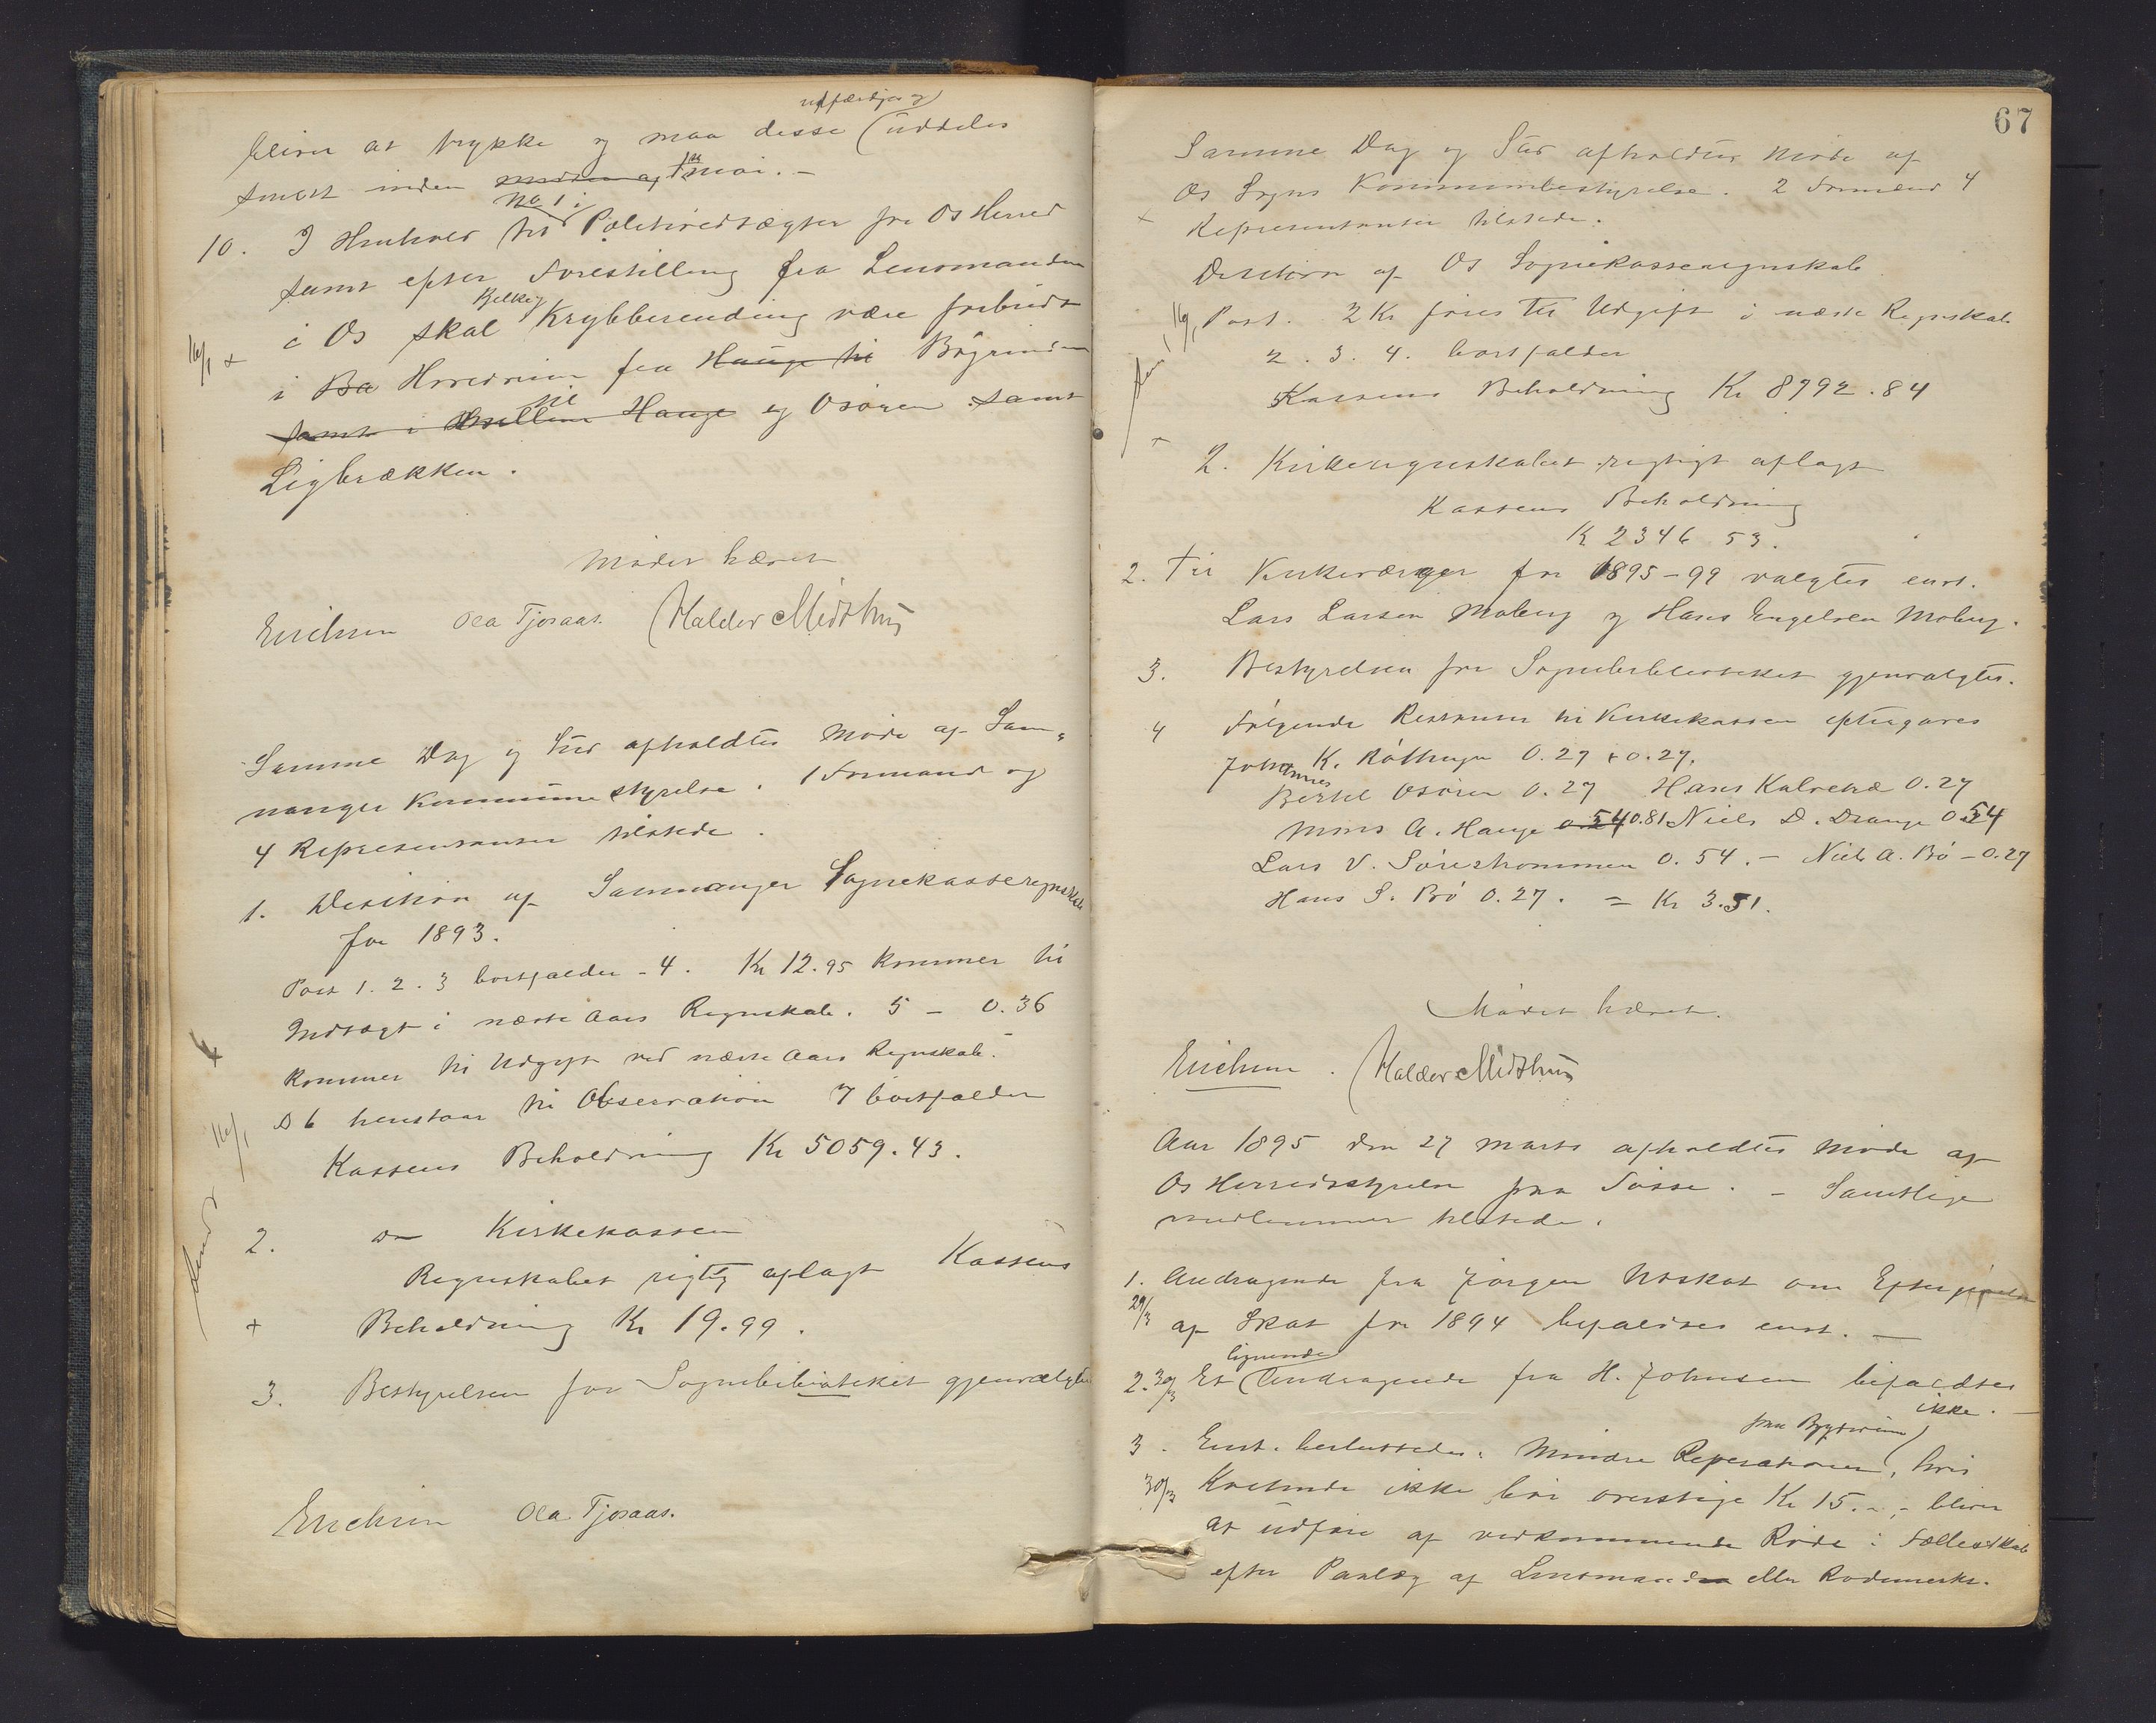 bliver at trykke og maa desse (udfærdiges og) uddeles
snart inden <s>midten af</s> 1ste mai. -
10. I Henhold til No 1 i Politivedtægter for Os Herred
samt efter Forestilling fra Lensmanden
i Os skal Krybberending være forbudt
16/1 +
i <s>Ba</s> Hovedveien fra <s>Hauge til</s> Bøgrinden
<s>samt i mellem</s> til Hauge og Osøren samt
Ligbrækken.
Mødet hævet
Erichsen Ola Tjosaas. Haldor Midthus
Samme Dag og Sted afholdtes Møde af Sam-
nanger Kommunestyrelse. 1 Formand og
4 Repræsentanter tilstede.
1. Desision af Samnanger Sognekasseregnskab
for 1893.
Post 1. 2. 3 bortfalder - 4. Kr 12.95 kommer til
Indtægt i næste Aars Regnskab. 5 - 0.36
kommer til Udgift ved næste Aars Regnskab.
6 henstaar til Observation 7 bortfalder
Kassens Beholdning Kr 5059.43.
2. Kirkekassen
Regnskabet rigtig aflagt Kassens
+ Beholdning Kr 19.99.
3. Bestyrelsen for Sognebibliotheket gjenvalgtes
Erichsen Ola Tjosaas.
67
Samme Dag og Sted afholdtes Møde af
Os Sogns Kommunebestyrelse. 2 Formænd 4
+ Repræsentanter tilstede.
Desision af Os Sognekasseregnskab
16/1 Post 1. 2 Kr føres til Udgift i næste Regnskab
2. 3. 4. bortfalder
Kassens Beholdning Kr 8792.84
+
2. Kirkeregnskabet rigtigt aflagt
Kassens Beholdning
K 2346 53.
2. Til Kirkeværger for 1895-99 valgtes enst.
Lars Larsen Moberg og Hans Engelsen Moberg.
3. Bestyrelsen for Sognebibliotheket gjenvalgtes.
4 Følgende Restanser til Kirkekassen eftergaves
Johannes K. Røttingen 0.27 + 0.27.
Bertel Osøren 0.27 Hans Kalvetræ 0.27
Mons A. Hauge <s>0.54</s> 0.81 Niels D. Drange 0.54
Lars V. Sørestrømmen 0.54. - Niels A. Bø - 0.27
Hans S. Bø 0.27. = Kr 3.51.
Mødet hævet.
Erichsen. Haldor Midthus
Aar 1895 den 27 Marts afholdtes Møde af
Os Herredsstyrelse paa Søfte. - Samtlige
medlemmer tilstede.
1. Andragende fra Jørgen Hoskot om Eftergivelse
29/3 af Skat for 1894 bifaldtes enst. -
2. 30/3 Et (lignende) Andragende fra H. Johnsen bifaldtes
ikke. -
3. Enst. besluttedes: Mindre Reperationer (paa Bygdeveien), hvis
30/3 Kostende ikke bør overstige Kr 15.-, bliver
at udføre af vedkommende Rode i Fællesskab
efter Paalæg af Lensmanden eller Rodemester.